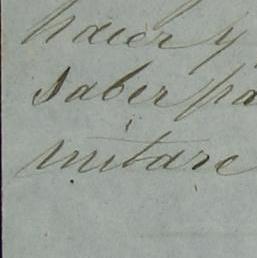 hacer y
saber pa
militare